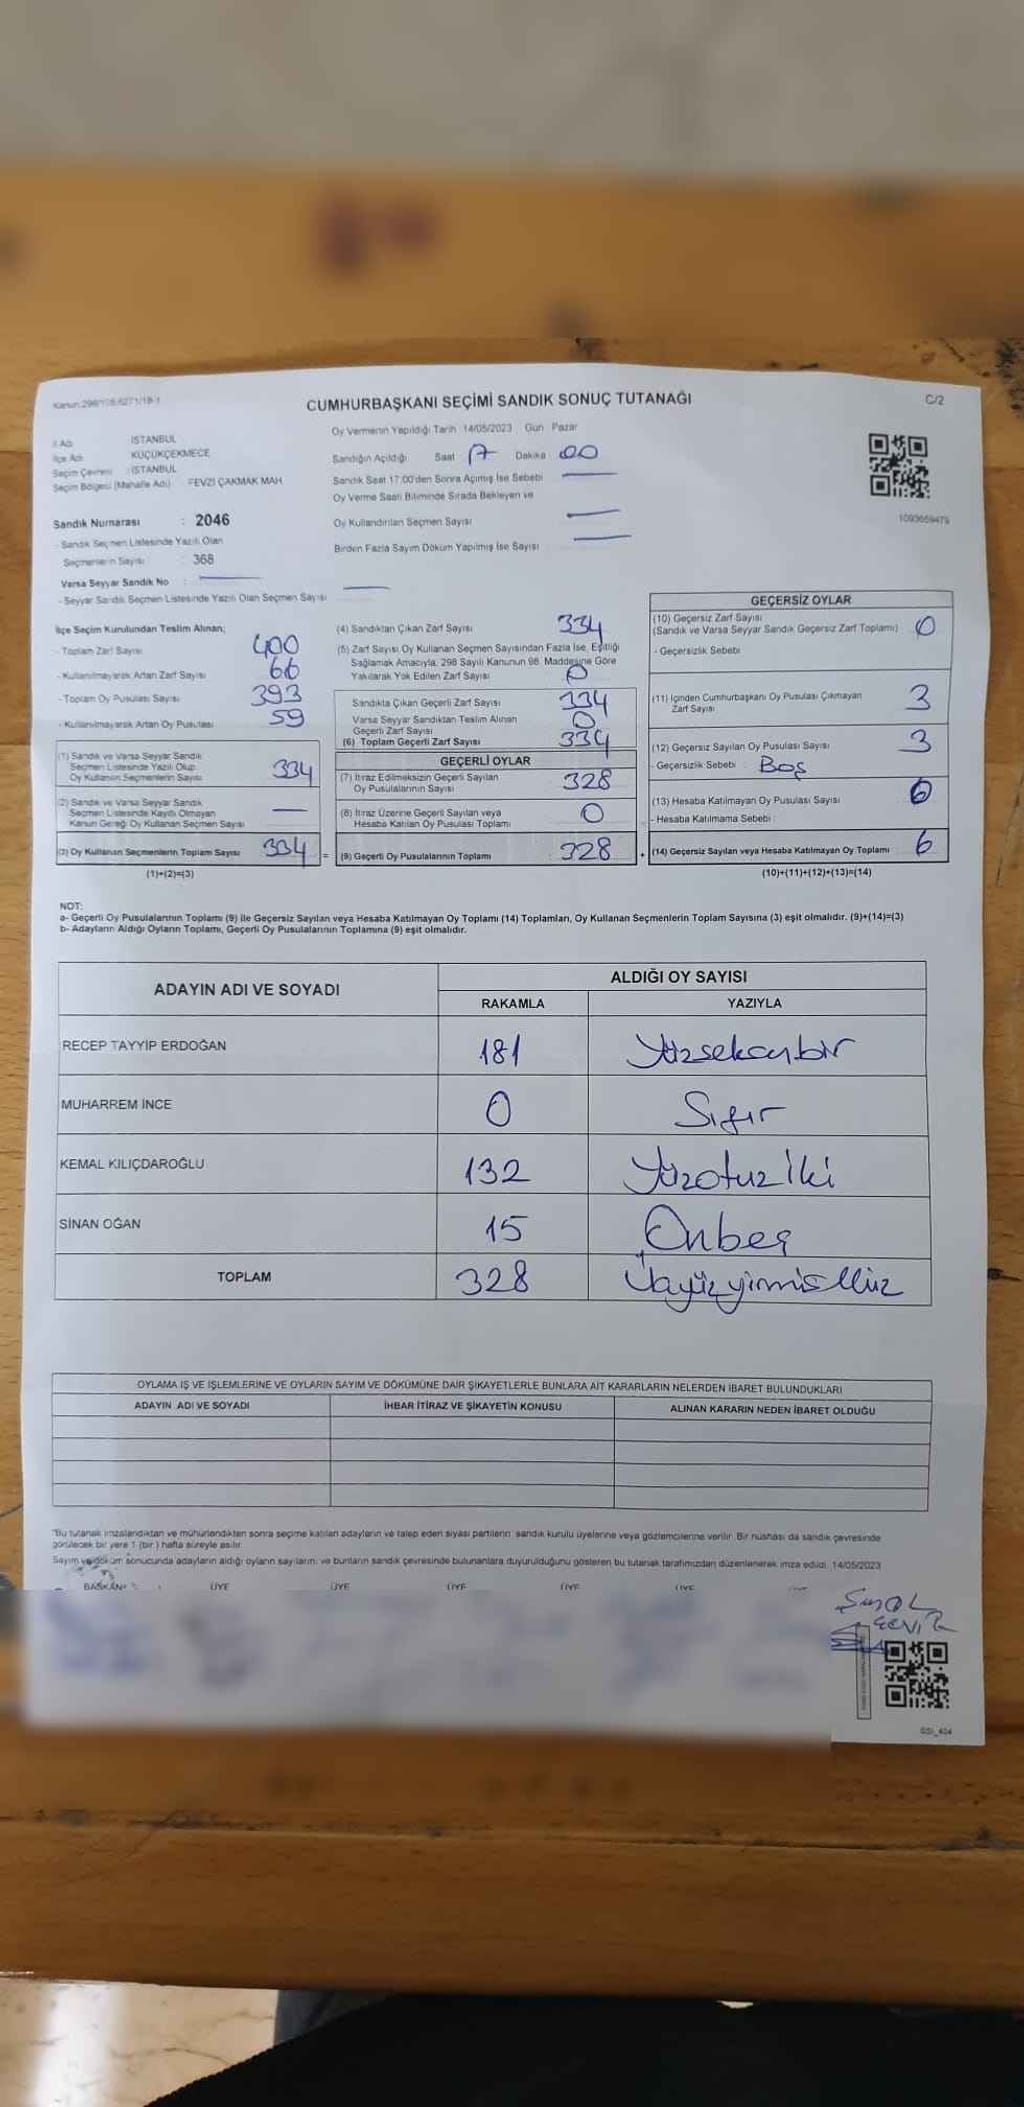 CUMHURBAŞKANI SEÇİMİ SANDIK SONUÇ TUTANAĞI
C/2
Oy Vermenin Yapıldığı Tarih 14/05/2023 Gün Pazar
İl Adı İSTANBUL
İlçe Adı KÜÇÜKÇEKMECE
Seçim Çevresi : İSTANBUL
Seçim Bölgesi (Mahalle Adı) FEVZİ ÇAKMAK MAH
Sandığın Açıldığı Saat 17 Dakika 00
Sandık Saat 17:00'den Sonra Açılmış İse Sebebi
Oy Verme Saati Bitiminde Sırada Bekleyen ve
Oy Kullandırılan Seçmen Sayısı
Birden Fazla Sayım Döküm Yapılmış İse Sayısı
Sandık Numarası : 2046
- Sandık Seçmen Listesinde Yazılı Olan
Seçmenlerin Sayısı : 368
Varsa Seyyar Sandık No :
- Seyyar Sandık Seçmen Listesinde Yazılı Olan Seçmen Sayısı
İlçe Seçim Kurulundan Teslim Alınan;
- Toplam Zarf Sayısı 400
- Kullanılmayarak Artan Zarf Sayısı 66
- Toplam Oy Pusulası Sayısı 393
- Kullanılmayarak Artan Oy Pusulası 59
(1) Sandık ve Varsa Seyyar Sandık
Seçmen Listesinde Yazılı Olup
Oy Kullanan Seçmenlerin Sayısı 334
(2) Sandık ve Varsa Seyyar Sandık
Seçmen Listesinde Kayıtlı Olmayan
Kanun Gereği Oy Kullanan Seçmen Sayısı
(3) Oy Kullanan Seçmenlerin Toplam Sayısı 334 =
(1)+(2)=(3)
(4) Sandıktan Çıkan Zarf Sayısı 334
(5) Zarf Sayısı Oy Kullanan Seçmen Sayısından Fazla İse, Eşitliği
Sağlamak Amacıyla, 298 Sayılı Kanunun 98. Maddesine Göre
Yakılarak Yok Edilen Zarf Sayısı 0
Sandıkta Çıkan Geçerli Zarf Sayısı 334
Varsa Seyyar Sandıktan Teslim Alınan
Geçerli Zarf Sayısı 0
(6) Toplam Geçerli Zarf Sayısı 334
GEÇERLİ OYLAR
(7) İtiraz Edilmeksizin Geçerli Sayılan
Oy Pusulalarının Sayısı 328
(8) İtiraz Üzerine Geçerli Sayılan veya
Hesaba Katılan Oy Pusulası Toplamı 0
(9) Geçerli Oy Pusulalarının Toplamı : 328 +
GEÇERSİZ OYLAR
(10) Geçersiz Zarf Sayısı
(Sandık ve Varsa Seyyar Sandık Geçersiz Zarf Toplamı) 0
- Geçersizlik Sebebi
(11) İçinden Cumhurbaşkanı Oy Pusulası Çıkmayan
Zarf Sayısı 3
(12) Geçersiz Sayılan Oy Pusulası Sayısı 3
- Geçersizlik Sebebi : Boş
(13) Hesaba Katılmayan Oy Pusulası Sayısı
- Hesaba Katılmama Sebebi
(14) Geçersiz Sayılan veya Hesaba Katılmayan Oy Toplamı 6
(10)+(11)+(12)+(13)=(14)
NOT:
a- Geçerli Oy Pusulalarının Toplamı (9) ile Geçersiz Sayılan veya Hesaba Katılmayan Oy Toplamı (14) Toplamları, Oy Kullanan Seçmenlerin Toplam Sayısına (3) eşit olmalıdır. (9)+(14)=(3)
b- Adayların Aldığı Oyların Toplamı, Geçerli Oy Pusulalarının Toplamına (9) eşit olmalıdır.
ADAYIN ADI VE SOYADI
ALDIĞI OY SAYISI
RAKAMLA YAZIYLA
RECEP TAYYİP ERDOĞAN 181 Yüzseksenbir
MUHARREM İNCE 0 Sıfır
KEMAL KILIÇDAROĞLU 132 Yüzotuziki
SİNAN OĞAN 15 Onbeş
TOPLAM 328 Üçyüzyirmisekiz
OYLAMA İŞ VE İŞLEMLERİNE VE OYLARIN SAYIM VE DÖKÜMÜNE DAİR ŞİKAYETLERLE BUNLARA AİT KARARLARIN NELERDEN İBARET BULUNDUKLARI
ADAYIN ADI VE SOYADI İHBAR İTİRAZ VE ŞİKAYETİN KONUSU ALINAN KARARIN NEDEN İBARET OLDUĞU
"Bu tutanak imzalandıktan ve mühürlendikten sonra seçime katılan adayların ve talep eden siyasi partilerin sandık kurulu üyelerine veya gözlemcilerine verilir. Bir nüshası da sandık çevresinde
görülecek bir yere 1 (bir) hafta süreyle asılır.
Sayım ve döküm sonucunda adayların aldığı oyların sayılarını ve bunların sandık çevresinde bulunanlara duyurulduğunu gösteren bu tutanak tarafımızdan düzenlenerek imza edildi. 14/05/2023
BAŞKAN ÜYE ÜYE ÜYE ÜYE ÜYE